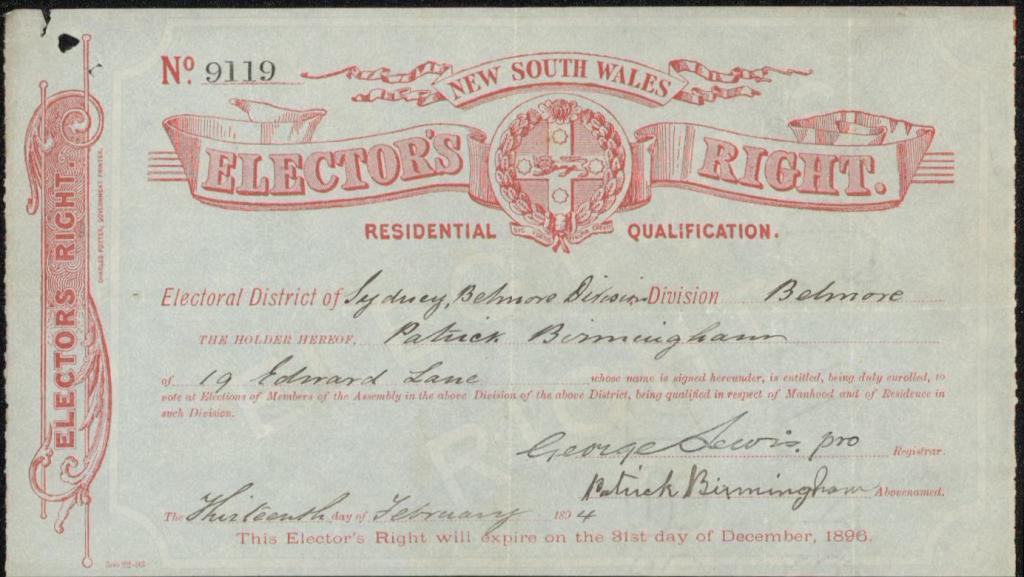 No. 9119
NEW SOUTH WALES
ELECTOR'S RIGHT.
RESIDENTIAL QUALIFICATION.
Electoral District of Sydney, Belmore Division Division Belmore
THE HOLDER HEREOF, Patrick Birmingham
of 19 Edward Lane, whose name is signed hereunder, is entitled, being duly enrolled, to
vote at Elections of Members of the Assembly in the above Division of the above District, being qualified in respect of Manhood and of Residence in
such Division.
George Lewis. pro Registrar.
Patrick Birmingham Abovenamed.
The Thirteenth day of February 1894
This Elector's Right will expire on the 31st day of December, 1896.
ELECTOR'S RIGHT
CHARLES POTTER, GOVERNMENT PRINTER.